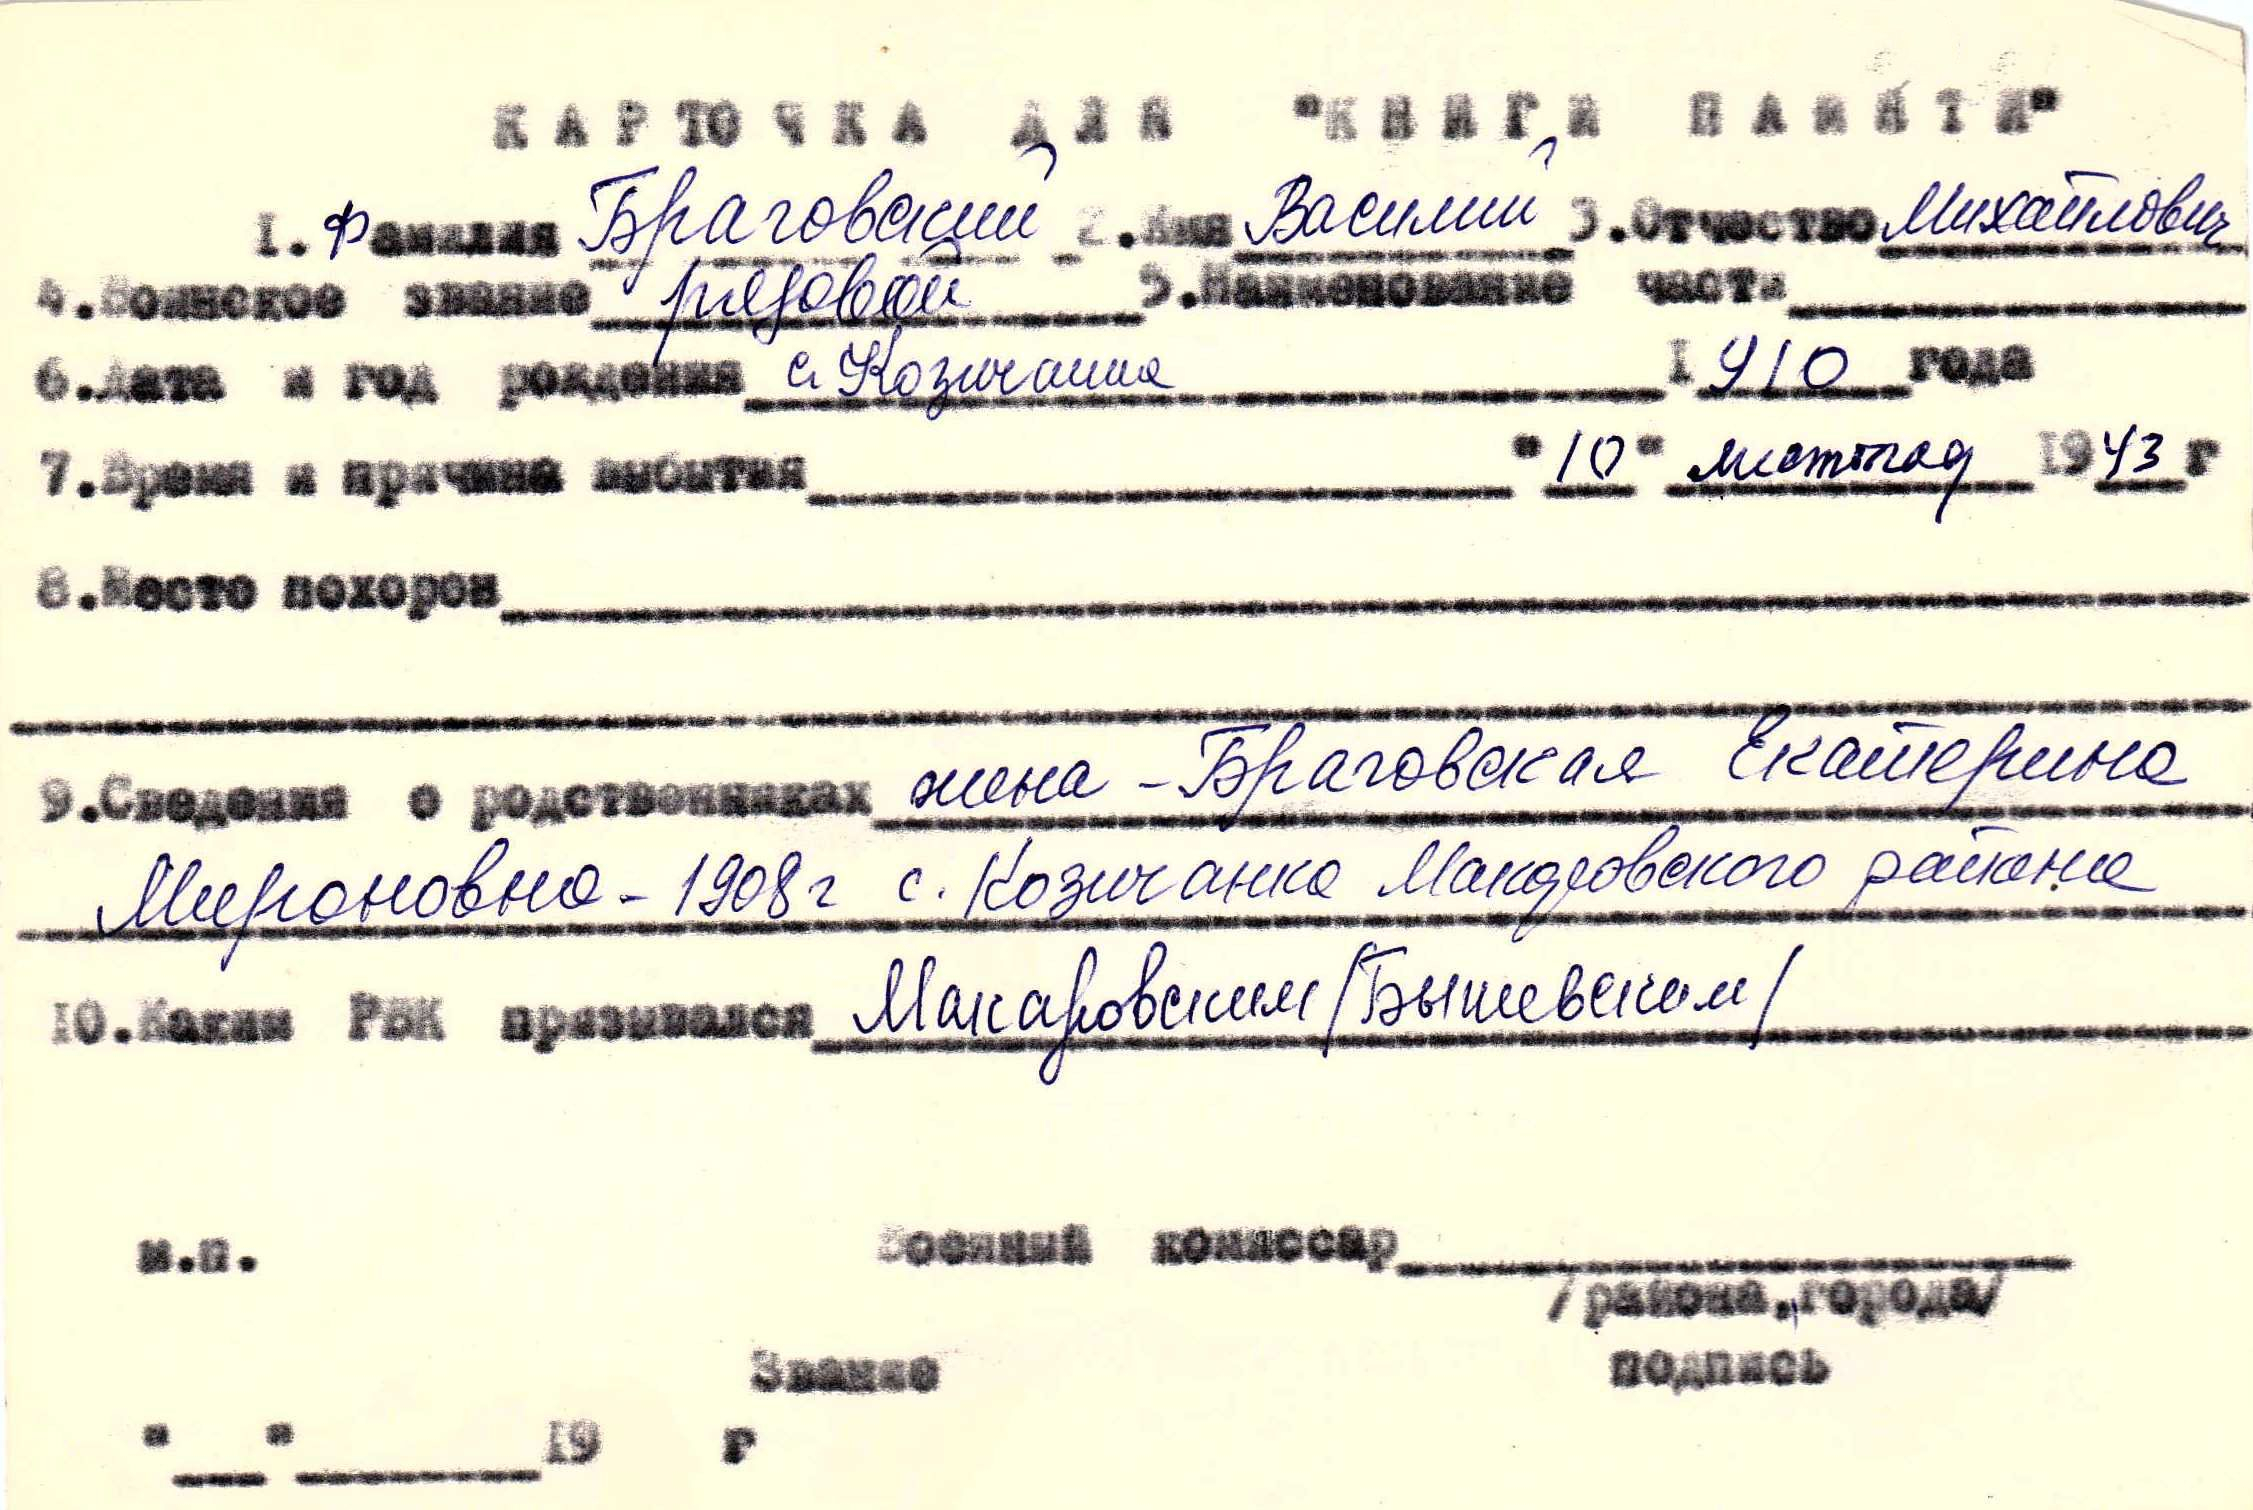 КАРТОЧКА ДЛЯ "КНИГИ ПАМЯТИ"
1. Фамилия Браговский 2. Имя Василий 3. Отчество Михайлович
4. Воинское звание рядовой 5. Наименование части
6. Дата и год рождения с. Козичанка 1910 года
7. Время и причина выбытия "10" листопад 1943 г
8. Место похорон
9. Сведения о родственниках жена - Браговская Екатерина
Мироновна - 1908 г с. Козичанка Макаровского района
10. Каким РВК призывался Макаровским /Бышевским/
м.п. Военный комиссар
/района, города/
Звание подпись
" " 19 г